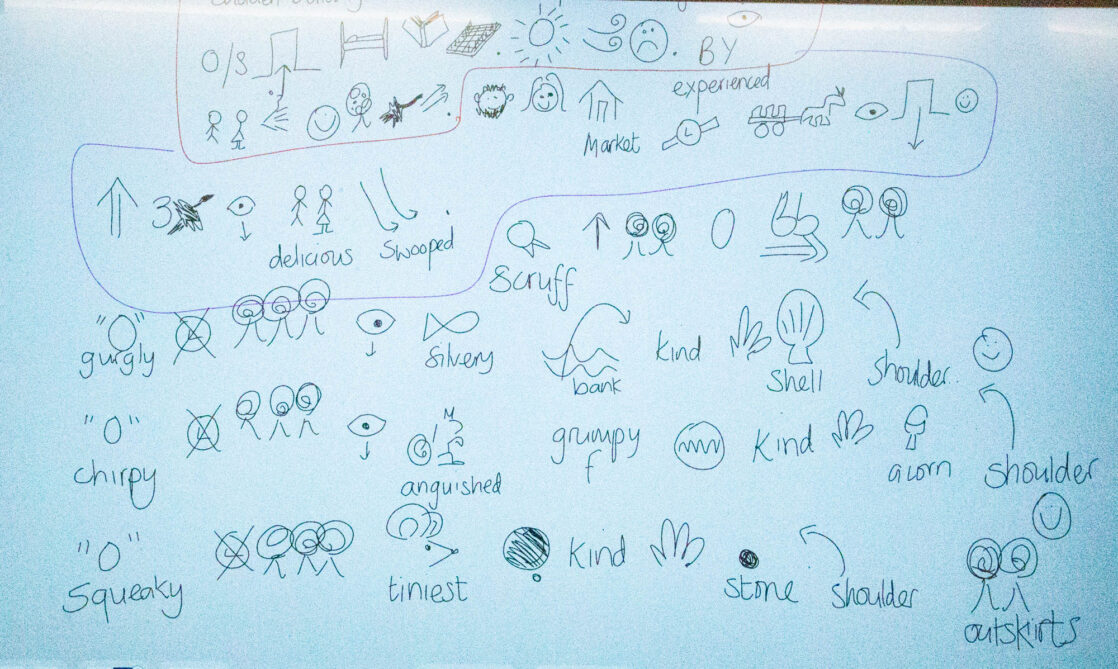 O/S
BY
experienced
Market
3
delicious swooped
Scruff
"O" gurgly
silvery
bank
kind
shell
shoulder
"O" chirpy
anguished
grumpy
f
kind
acorn
shoulder
"O" Squeaky
tiniest
kind
stone
shoulder
outskirts